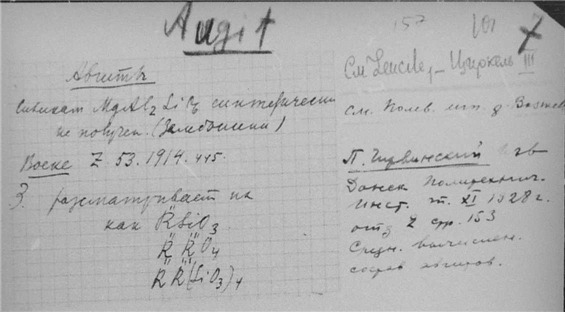 Augit
157
Авгитъ
Силикат MgAl₂SiO₆ синтетически
не получен. (Замбонини)
Boeke Z 53. 1914. 445.
З. рассматривает их
как R̈SiO₃
R̈ R̈O₄
R̈ R̈(SiO₃)₄
См. Leucite, – Циркель III
см. Полев. шп.
П. Чирвинский
Донск Политехнич.
Инст. т. XI 1928 г.
отд 2 стр. 153
Средн. вычислен.
состав авгитов.